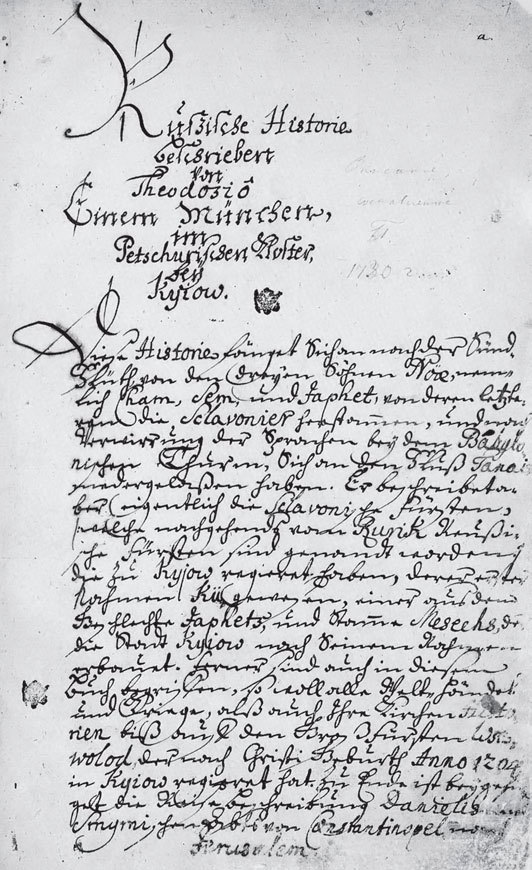 a.
Rußische Historie
beschrieben
von
Theodosiô
Einem München,
im
Petschurischen Kloster,
bey
Kyiow.
1730
Diese Historie fänget sich an nach der Sünd-
fluth, von den dreyen Söhnen Noæ, nem-
lich Cham, Sem, und Japhet, von deren letzte-
rem die Sclavonier herstammen, und nach
Verwirrung der Sprachen bey dem Babylo-
nischen Thurm, sich an den Fluß Tanais
niedergelaßen haben. Er beschreibet a-
ber eigentlich die Sclavonische Fürsten,
welche nachgehends vom Rurik Reußi-
sche Fürsten sind genandt worden,
die zu Kyjow regieret haben, derer erster
Nahmen Kii gewesen, einer aus dem
Geschlechte Japhets, und Stamme Mesechs, de
die Stadt Kyiow nach Seinem Nahmen
erbauet. Ferner sind auch in diesem
Buch begriffen, so woll alle Welt-Händel
und Kriege, alß auch Ihre Kirchen Histo-
rien biß auf den Groß Fürsten
wolod, der nach Christi Geburth Anno 120
in Kyiow regieret hat. Zu Ende ist beygefü-
get die Reise beschreibung Danielis
schen Abts von Constantinopel nach
Jerusalem.